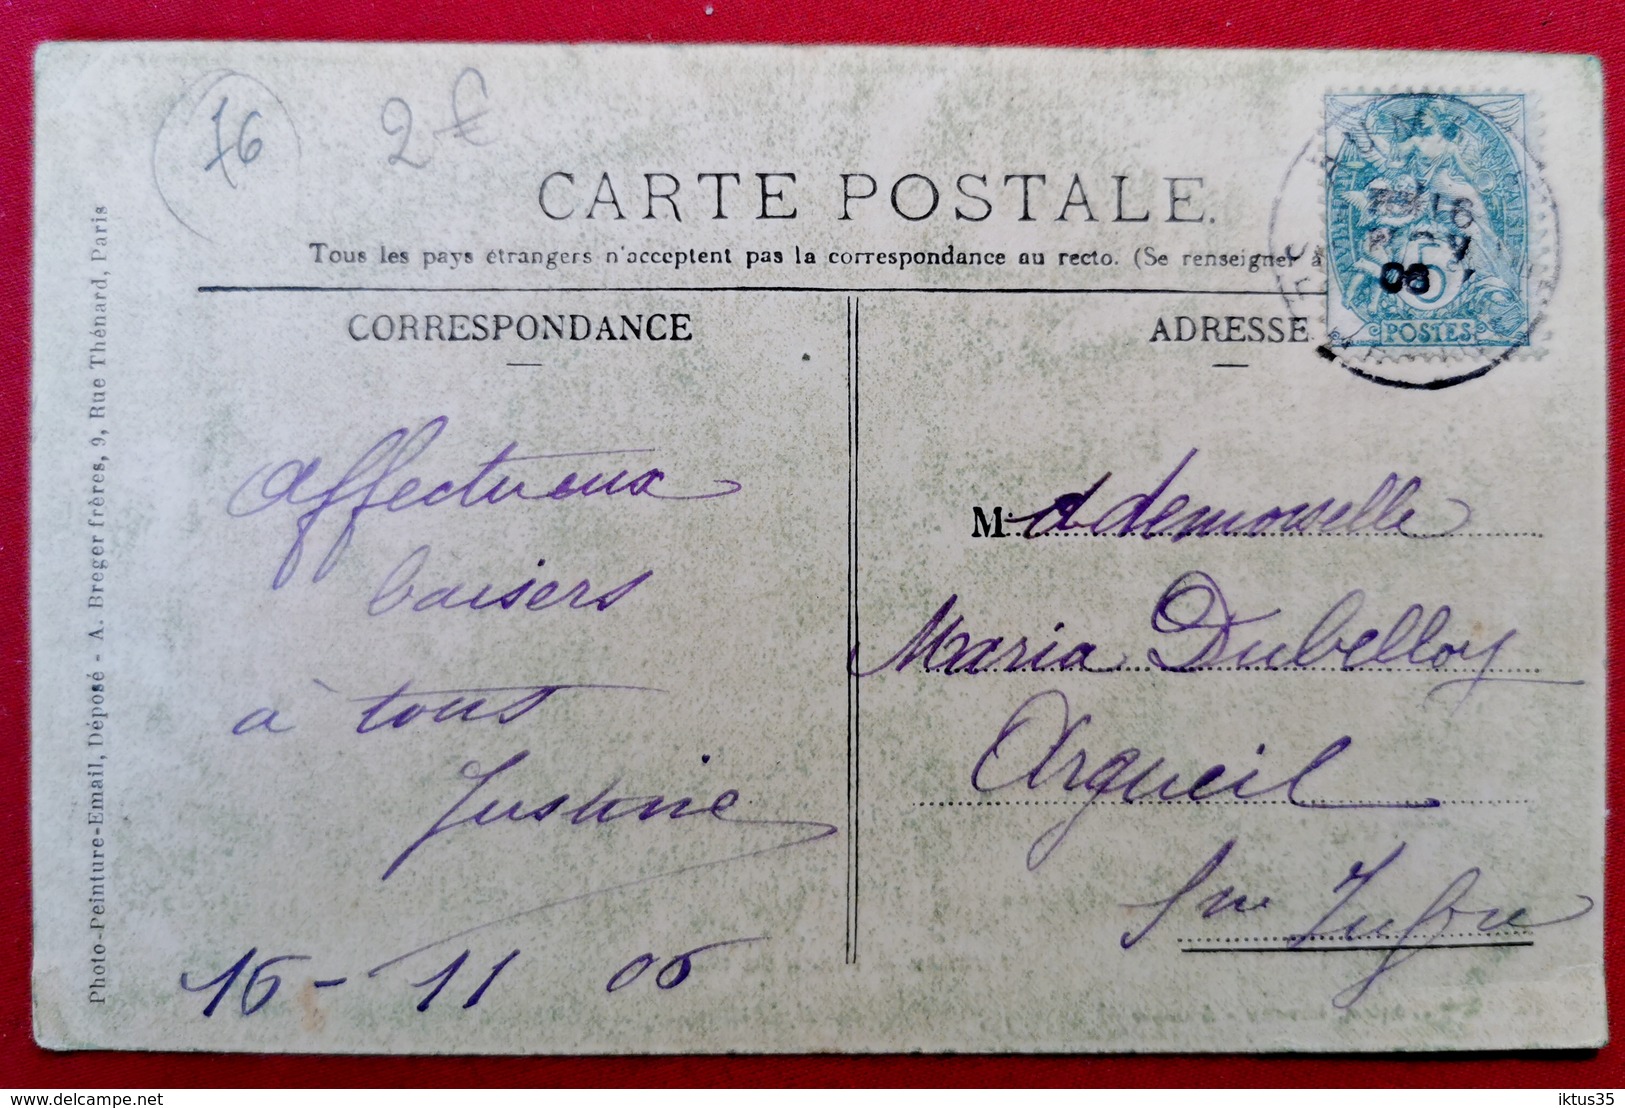 76
2€
CARTE POSTALE.
Tous les pays étrangers n'acceptent pas la correspondance au recto. (Se renseigner à
CORRESPONDANCE
ADRESSE
16
06
5
POSTES
Affectueux
baisers
à tous
Justine
16-11 06
M. demoiselle
Maria Dubelloy
Argueil
Photo-Peinture-Email, Déposé - A. Breger frères, 9, Rue Thénard, Paris
www.delcampe.net
iktus35